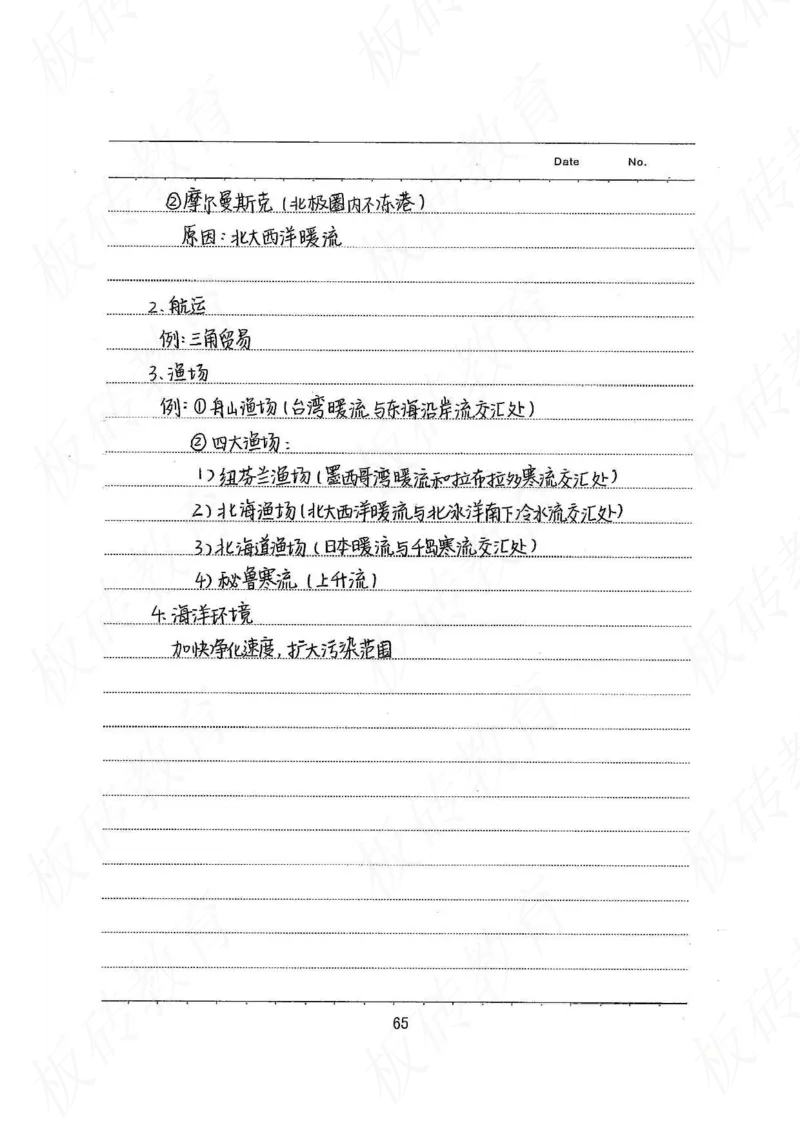 Date No.
②摩尔曼斯克（北极圈内不冻港）
原因：北大西洋暖流
2.航运
例：三角贸易
3.渔场
例：①舟山渔场（台湾暖流与东海沿岸流交汇处）
②四大渔场：
1）纽芬兰渔场（墨西哥湾暖流和拉布拉多寒流交汇处）
2）北海渔场（北大西洋暖流与北冰洋南下冷水流交汇处）
3）北海道渔场（日本暖流与千岛寒流交汇处）
4）秘鲁寒流（上升流）
4.海洋环境
加快净化速度，扩大污染范围
65
板砖教育